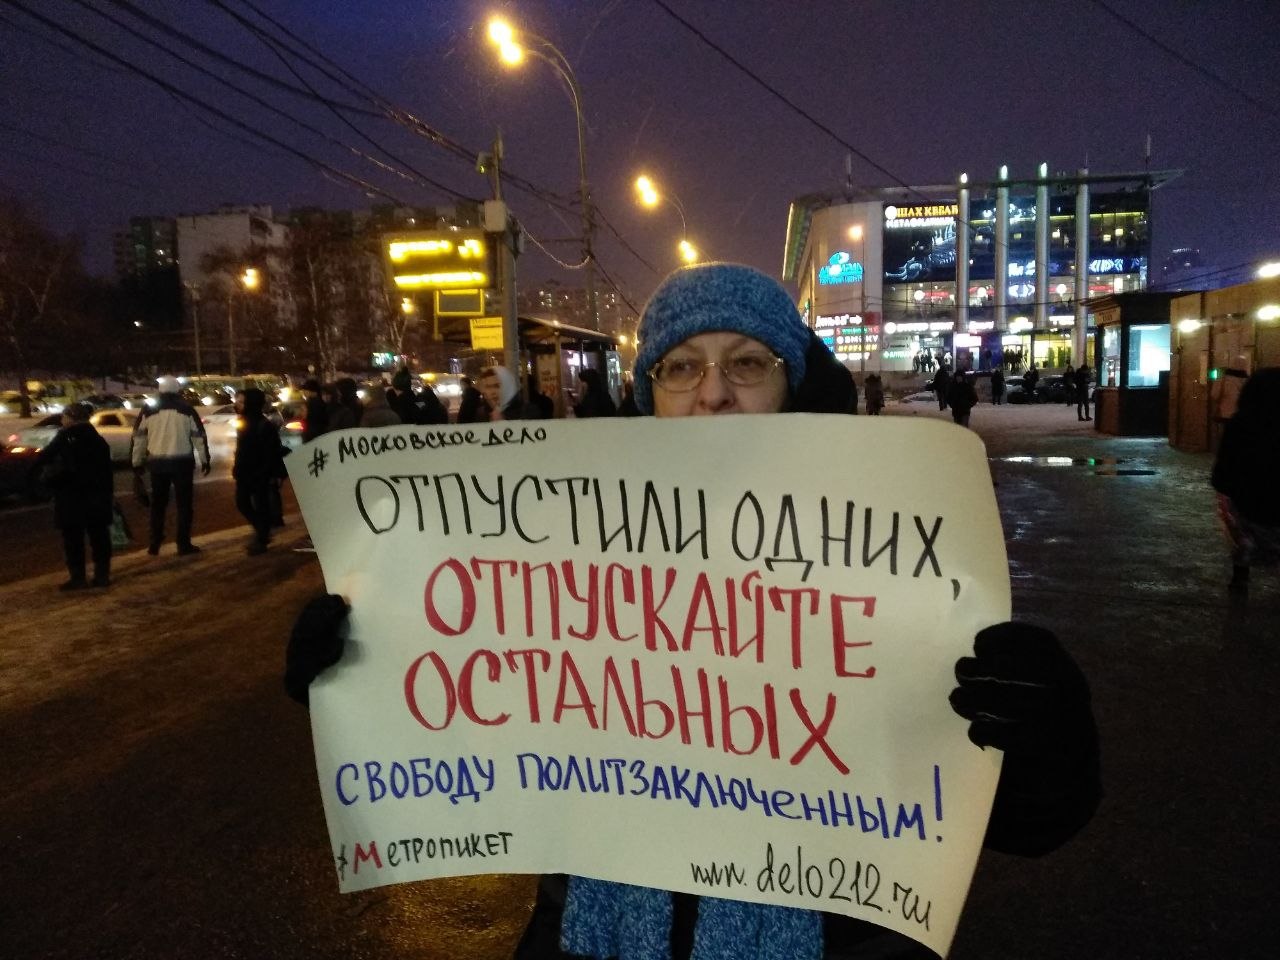 # МОСКОВСКОЕ ДЕЛО
ОТПУСТИЛИ ОДНИХ,
ОТПУСКАЙТЕ
ОСТАЛЬНЫХ
СВОБОДУ ПОЛИТЗАКЛЮЧЕННЫМ!
#МЕТРОПИКЕТ
www.delo212.ru
ШАХ КЕБАБ